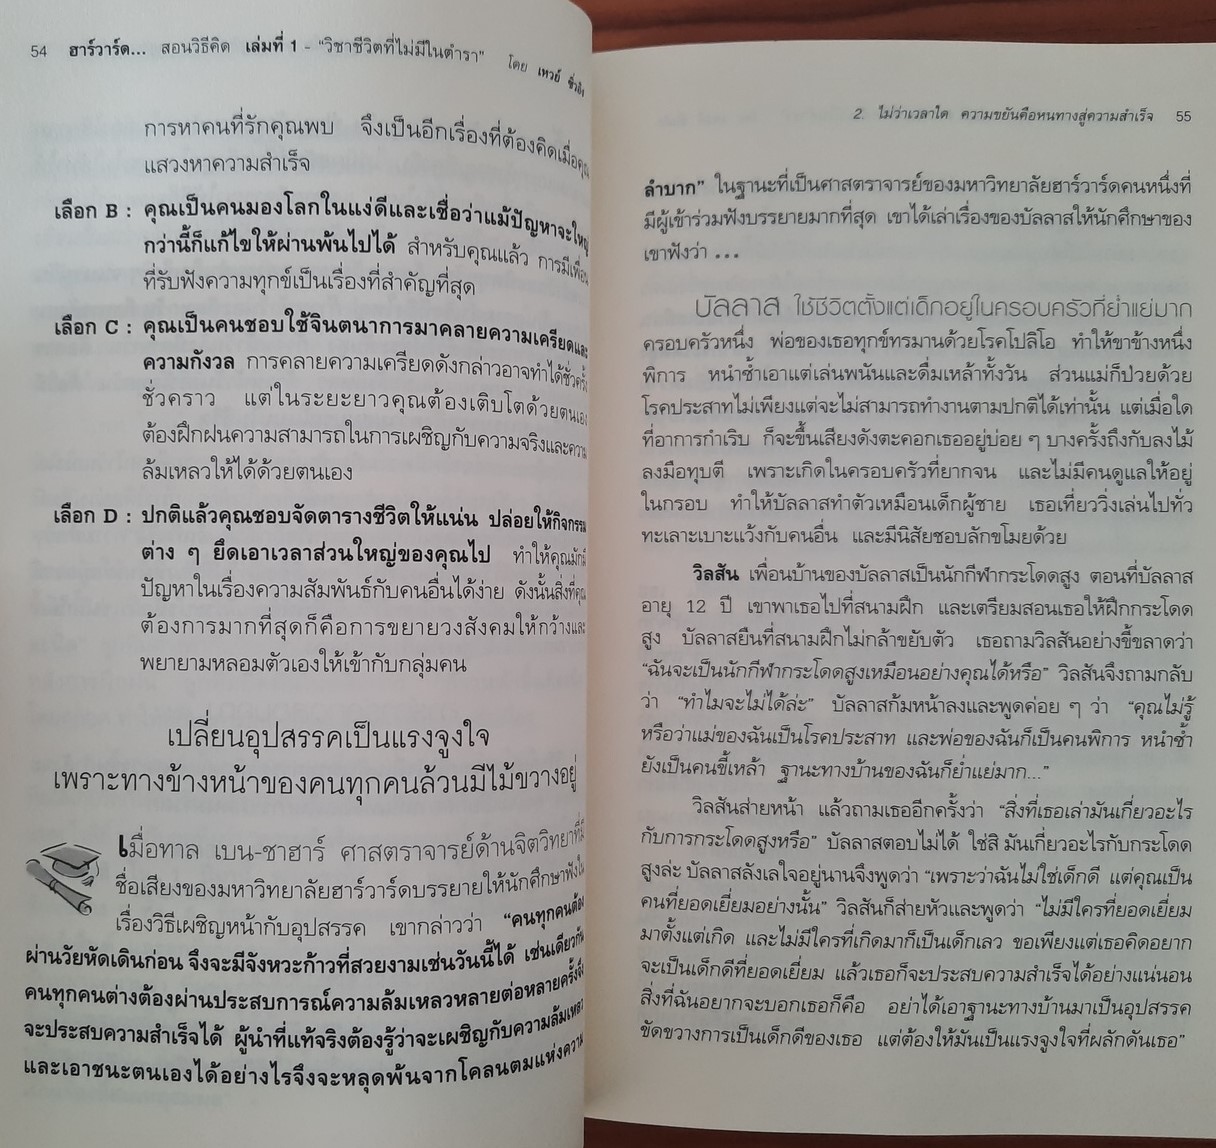 54 ฮาร์วาร์ด... สอนวิธีคิด เล่มที่ 1 - "วิชาชีวิตที่ไม่มีในตำรา" โดย เหวย์ ซิ่วอิง
การหาคนที่รักคุณพบ จึงเป็นอีกเรื่องที่ต้องคิดเมื่อคุณ
แสวงหาความสำเร็จ
เลือก B : คุณเป็นคนมองโลกในแง่ดีและเชื่อว่าแม้ปัญหาจะใหญ่
กว่านี้ก็แก้ไขให้ผ่านพ้นไปได้ สำหรับคุณแล้ว การมีเพื่อน
ที่รับฟังความทุกข์เป็นเรื่องที่สำคัญที่สุด
เลือก C : คุณเป็นคนชอบใช้จินตนาการมาคลายความเครียดและ
ความกังวล การคลายความเครียดดังกล่าวอาจทำได้ชั่วครั้ง
ชั่วคราว แต่ในระยะยาวคุณต้องเติบโตด้วยตนเอง
ต้องฝึกฝนความสามารถในการเผชิญกับความจริงและความ
ล้มเหลวให้ได้ด้วยตนเอง
เลือก D : ปกติแล้วคุณชอบจัดตารางชีวิตให้แน่น ปล่อยให้กิจกรรม
ต่าง ๆ ยึดเอาเวลาส่วนใหญ่ของคุณไป ทำให้คุณมักมี
ปัญหาในเรื่องความสัมพันธ์กับคนอื่นได้ง่าย ดังนั้นสิ่งที่คุณ
ต้องการมากที่สุดก็คือการขยายวงสังคมให้กว้างและ
พยายามหลอมตัวเองให้เข้ากับกลุ่มคน
เปลี่ยนอุปสรรคเป็นแรงจูงใจ
เพราะทางข้างหน้าของคนทุกคนล้วนมีไม้ขวางอยู่
เมื่อทาล เบน-ชาฮาร์ ศาสตราจารย์ด้านจิตวิทยาที่มี
ชื่อเสียงของมหาวิทยาลัยฮาร์วาร์ดบรรยายให้นักศึกษาฟังใน
เรื่องวิธีเผชิญหน้ากับอุปสรรค เขากล่าวว่า "คนทุกคนต้อง
ผ่านวัยหัดเดินก่อน จึงจะมีจังหวะก้าวที่สวยงามเช่นวันนี้ได้ เช่นเดียวกัน
คนทุกคนต่างต้องผ่านประสบการณ์ความล้มเหลวหลายต่อหลายครั้งจึง
จะประสบความสำเร็จได้ ผู้นำที่แท้จริงต้องรู้ว่าจะเผชิญกับความล้มเหลว
และเอาชนะตนเองได้อย่างไรจึงจะหลุดพ้นจากโคลนตมแห่งความ
2. ไม่ว่าเวลาใด ความขยันคือหนทางสู่ความสำเร็จ 55
ลำบาก" ในฐานะที่เป็นศาสตราจารย์ของมหาวิทยาลัยฮาร์วาร์ดคนหนึ่งที่
มีผู้เข้าร่วมฟังบรรยายมากที่สุด เขาได้เล่าเรื่องของบัลลาสให้นักศึกษาของ
เขาฟังว่า ...
บัลลาส ใช้ชีวิตตั้งแต่เด็กอยู่ในครอบครัวที่ย่ำแย่มาก
ครอบครัวหนึ่ง พ่อของเธอทุกข์ทรมานด้วยโรคโปลิโอ ทำให้ขาข้างหนึ่ง
พิการ หนำซ้ำเอาแต่เล่นพนันและดื่มเหล้าทั้งวัน ส่วนแม่ก็ป่วยด้วย
โรคประสาทไม่เพียงแต่จะไม่สามารถทำงานตามปกติได้เท่านั้น แต่เมื่อใด
ที่อาการกำเริบ ก็จะขึ้นเสียงดังตะคอกเธออยู่บ่อย ๆ บางครั้งถึงกับลงไม้
ลงมือทุบตี เพราะเกิดในครอบครัวที่ยากจน และไม่มีคนดูแลให้อยู่
ในกรอบ ทำให้บัลลาสทำตัวเหมือนเด็กผู้ชาย เธอเที่ยววิ่งเล่นไปทั่ว
ทะเลาะเบาะแว้งกับคนอื่น และมีนิสัยชอบลักขโมยด้วย
วิลสัน เพื่อนบ้านของบัลลาสเป็นนักกีฬากระโดดสูง ตอนที่บัลลาส
อายุ 12 ปี เขาพาเธอไปที่สนามฝึก และเตรียมสอนเธอให้ฝึกกระโดด
สูง บัลลาสยืนที่สนามฝึกไม่กล้าขยับตัว เธอถามวิลสันอย่างขี้ขลาดว่า
"ฉันจะเป็นนักกีฬากระโดดสูงเหมือนอย่างคุณได้หรือ" วิลสันจึงถามกลับ
ว่า "ทำไมจะไม่ได้ล่ะ" บัลลาสก้มหน้าลงและพูดค่อย ๆ ว่า "คุณไม่รู้
หรือว่าแม่ของฉันเป็นโรคประสาท และพ่อของฉันก็เป็นคนพิการ หนำซ้ำ
ยังเป็นคนขี้เหล้า ฐานะทางบ้านของฉันก็ย่ำแย่มาก..."
วิลสันส่ายหน้า แล้วถามเธออีกครั้งว่า "สิ่งที่เธอเล่ามันเกี่ยวอะไร
กับการกระโดดสูงหรือ" บัลลาสตอบไม่ได้ ใช่สิ มันเกี่ยวอะไรกับกระโดด
สูงล่ะ บัลลาสลังเลใจอยู่นานจึงพูดว่า "เพราะว่าฉันไม่ใช่เด็กดี แต่คุณเป็น
คนที่ยอดเยี่ยมอย่างนั้น" วิลสันก็ส่ายหัวและพูดว่า "ไม่มีใครที่ยอดเยี่ยม
มาตั้งแต่เกิด และไม่มีใครที่เกิดมาก็เป็นเด็กเลว ขอเพียงแต่เธอคิดอยาก
จะเป็นเด็กดีที่ยอดเยี่ยม แล้วเธอก็จะประสบความสำเร็จได้อย่างแน่นอน
สิ่งที่ฉันอยากจะบอกเธอก็คือ อย่าได้เอาฐานะทางบ้านมาเป็นอุปสรรค
ขัดขวางการเป็นเด็กดีของเธอ แต่ต้องให้มันเป็นแรงจูงใจที่ผลักดันเธอ"